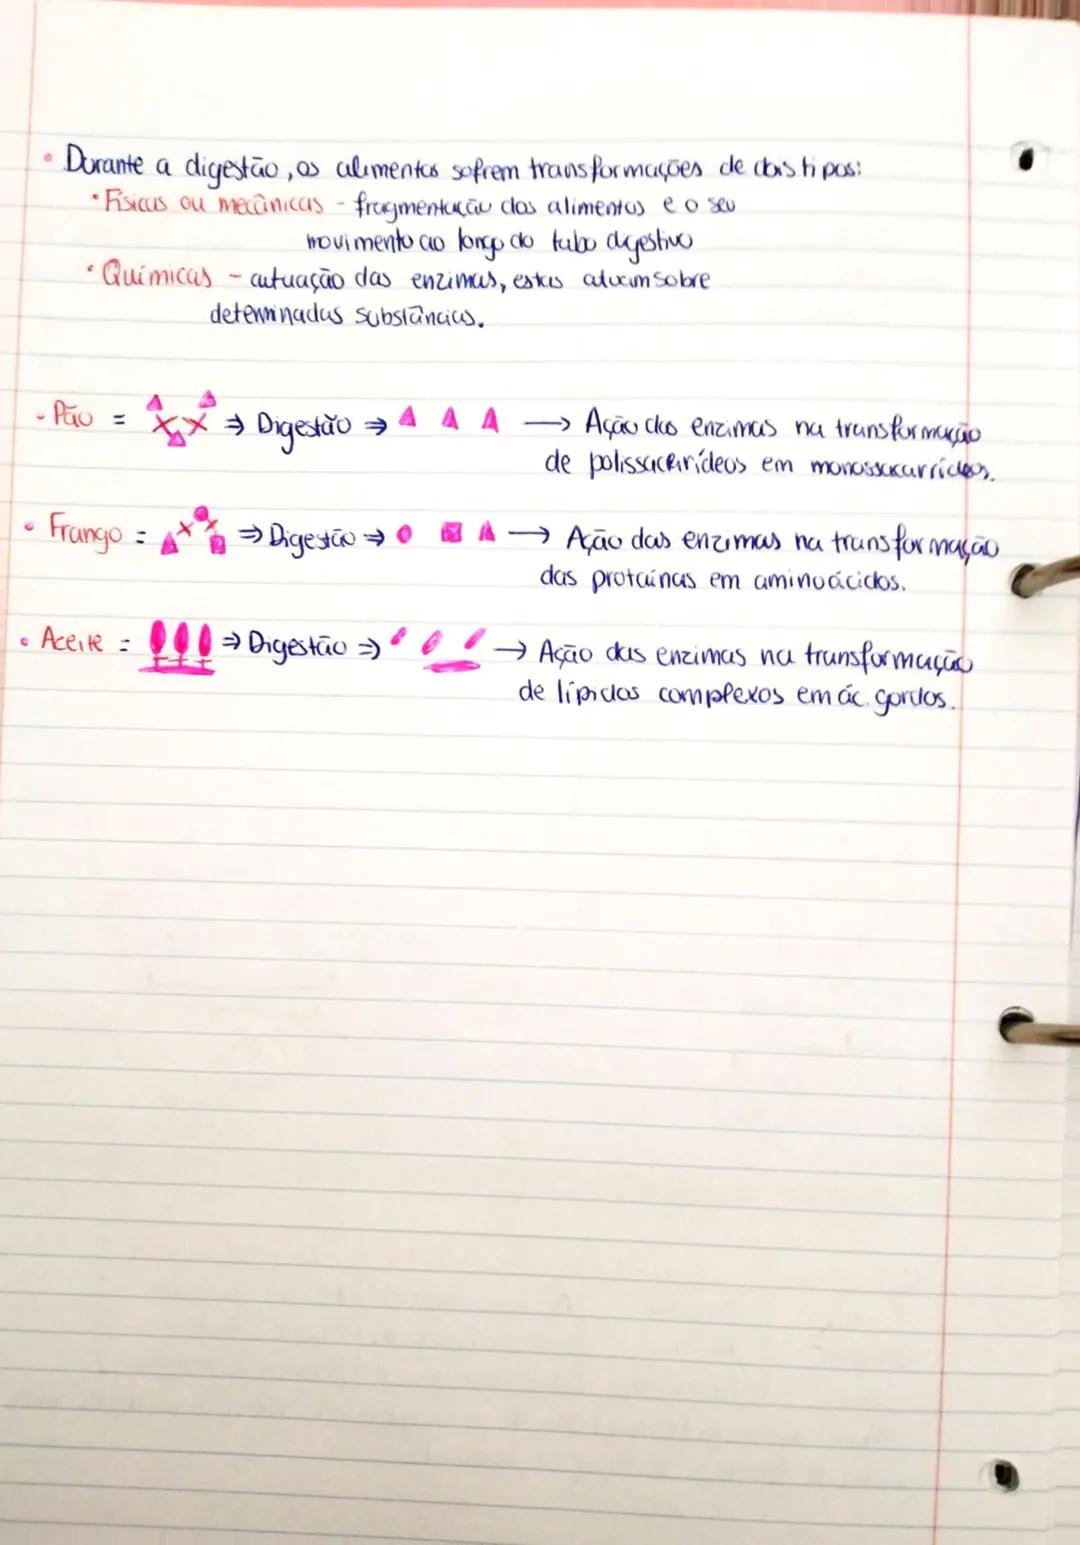 • Durante a digestão, os alimentos sofrem transformações de dois tipos:
• Físicas ou mecânicas - fragmentação dos alimentos e o seu
movimento ao longo do tubo digestivo
• Químicas - atuação das enzimas, estas atuam sobre
determinadas substâncias.
- Pão = ⇒ Digestão ⇒ → Ação das enzimas na transformação
de polissacarídeos em monossacarrídeos.
• Frango = ⇒ Digestão ⇒ → Ação das enzimas na transformação
das protaínas em aminoácidos.
• Aceite = ⇒ Digestão ⇒ → Ação das enzimas na transformação
de lípidos complexos em ác. gordos.